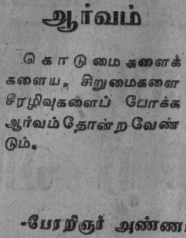 ஆர்வம்
கொடுமைகளைக்
களைய, சிறுமைகளை
சீரழிவுகளைப் போக்க
ஆர்வம்தோன்றவேண்
டும்.
-பேரறிஞர் அண்ணா